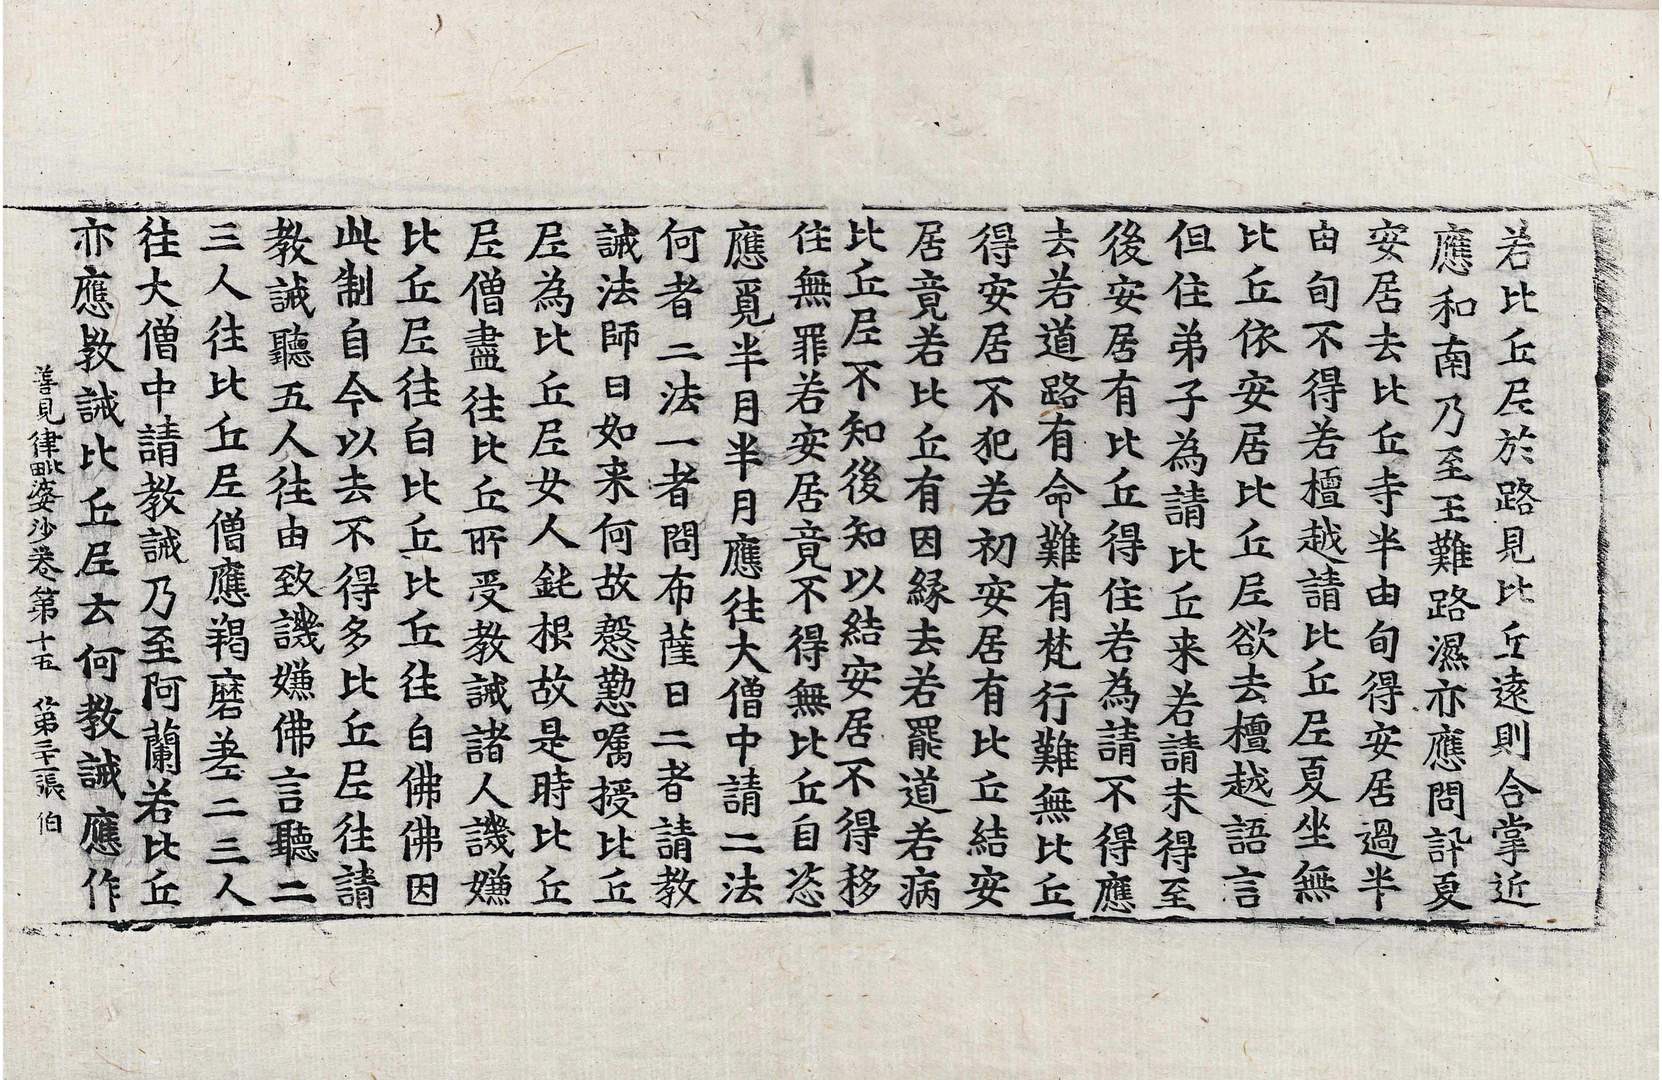 若比丘尼於路見比丘遠則合掌近
應和南乃至王難路濕亦應問訊夏
安居去比丘寺半由旬得安居過半
由旬不得若檀越請比丘尼夏坐無
比丘依安居比丘尼欲去檀越語言
但住弟子為請比丘来若請未得至
後安居有比丘得住若為請不得應
去若道路有命難有梵行難無比丘
得安居不犯若初安居有比丘結安
居竟若比丘有因縁去若罷道若病
比丘尼不知後知以結安居不得移
住無罪若安居竟不得無比丘自恣
應覓半月半月應往大僧中請二法
何者二法一者問布薩日二者請教
誡法師日如来何故慇懃囑授比丘
尼為比丘尼女人鈍根故是時比丘
尼僧盡往比丘所受教誡諸人譏嫌
比丘尼往白比丘比丘往白佛佛因
此制自今以去不得多比丘尼往請
教誡聽五人往由致譏嫌佛言聽二
三人往比丘尼僧應羯磨差二三人
往大僧中請教誡乃至阿蘭若比丘
亦應教誡比丘尼云何教誡應作
善見律毗婆沙卷第十五 第三十一張 伯